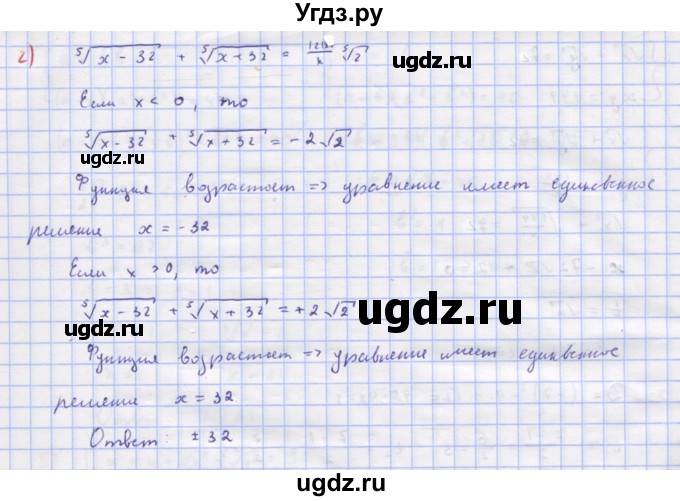 Угдз.ру
2) ⁵√(x - 32) + ⁵√(x + 32) = /x ⁵√2
Если x < 0, то
⁵√(x - 32) + ⁵√(x + 32) = -2√2
угдз.ру
Функция возрастает => уравнение имеет единственное
решение x = -32
Если x > 0, то
⁵√(x - 32) + ⁵√(x + 32) = +2√2
угдз.ру
угдз.ру
Функция возрастает => уравнение имеет единственное
решение x = 32
Ответ: ± 32
угдз.ру
угдз.ру